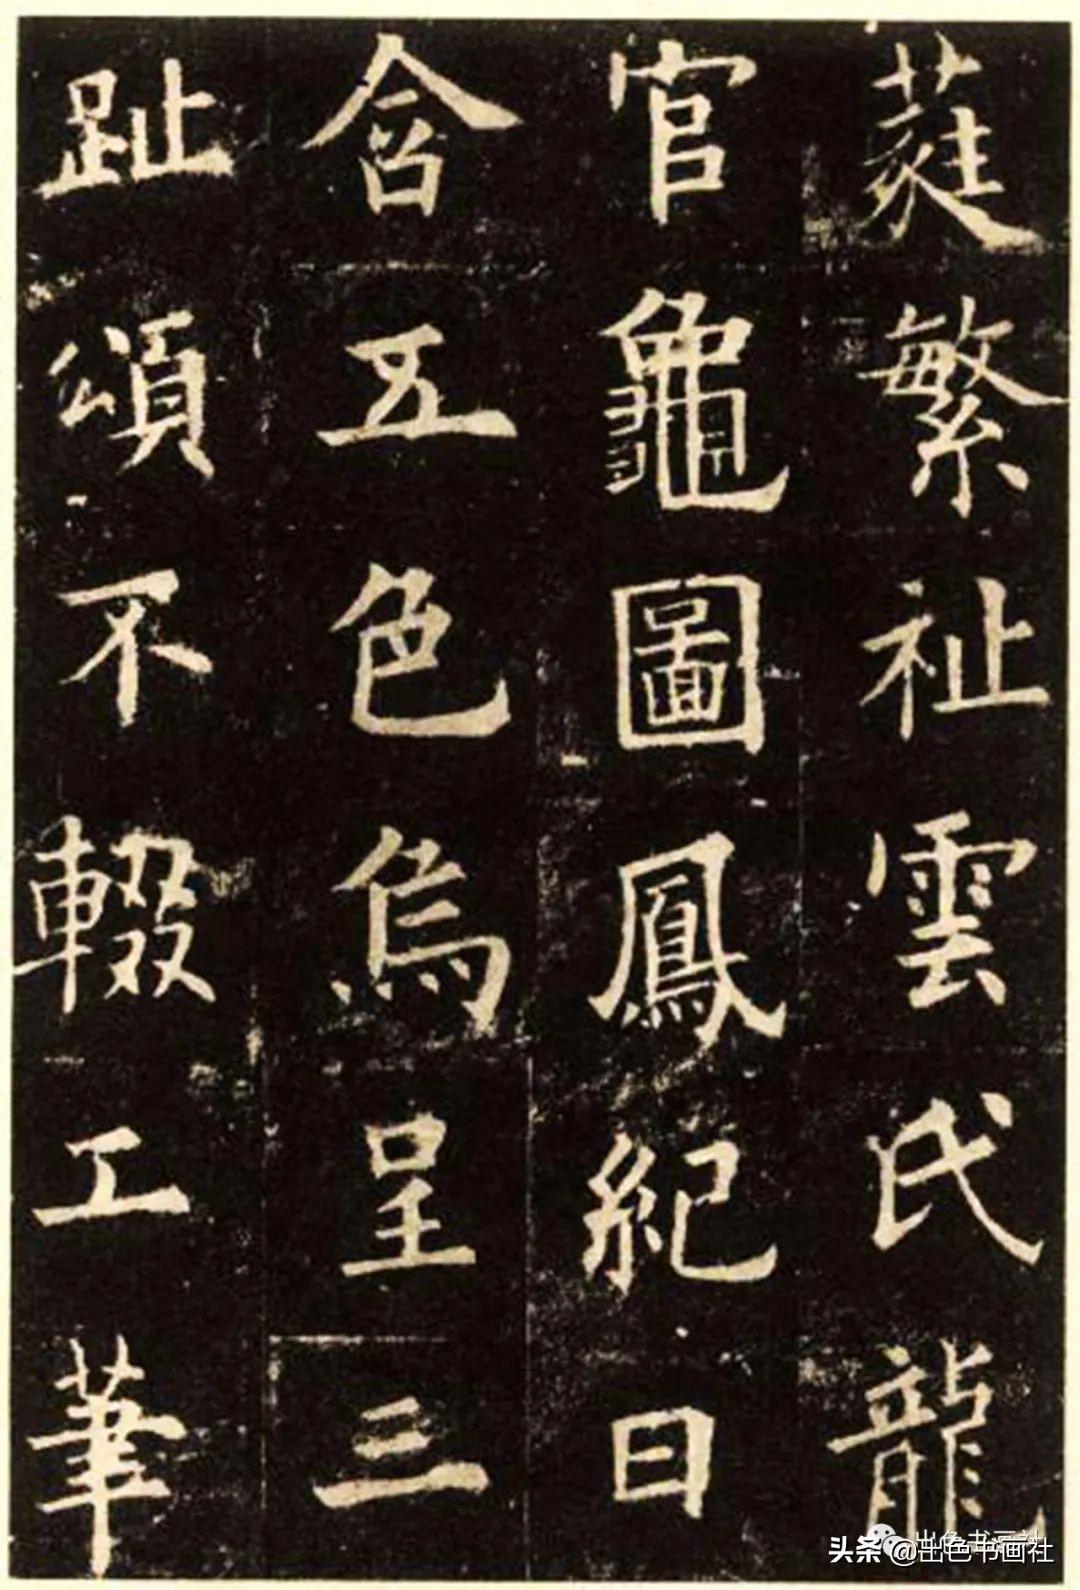 蕤繁祉雲氏龍
官龜圖鳳紀日
含五色烏呈三
趾頌不輟工筆
出色书画社
头条 @出色书画社